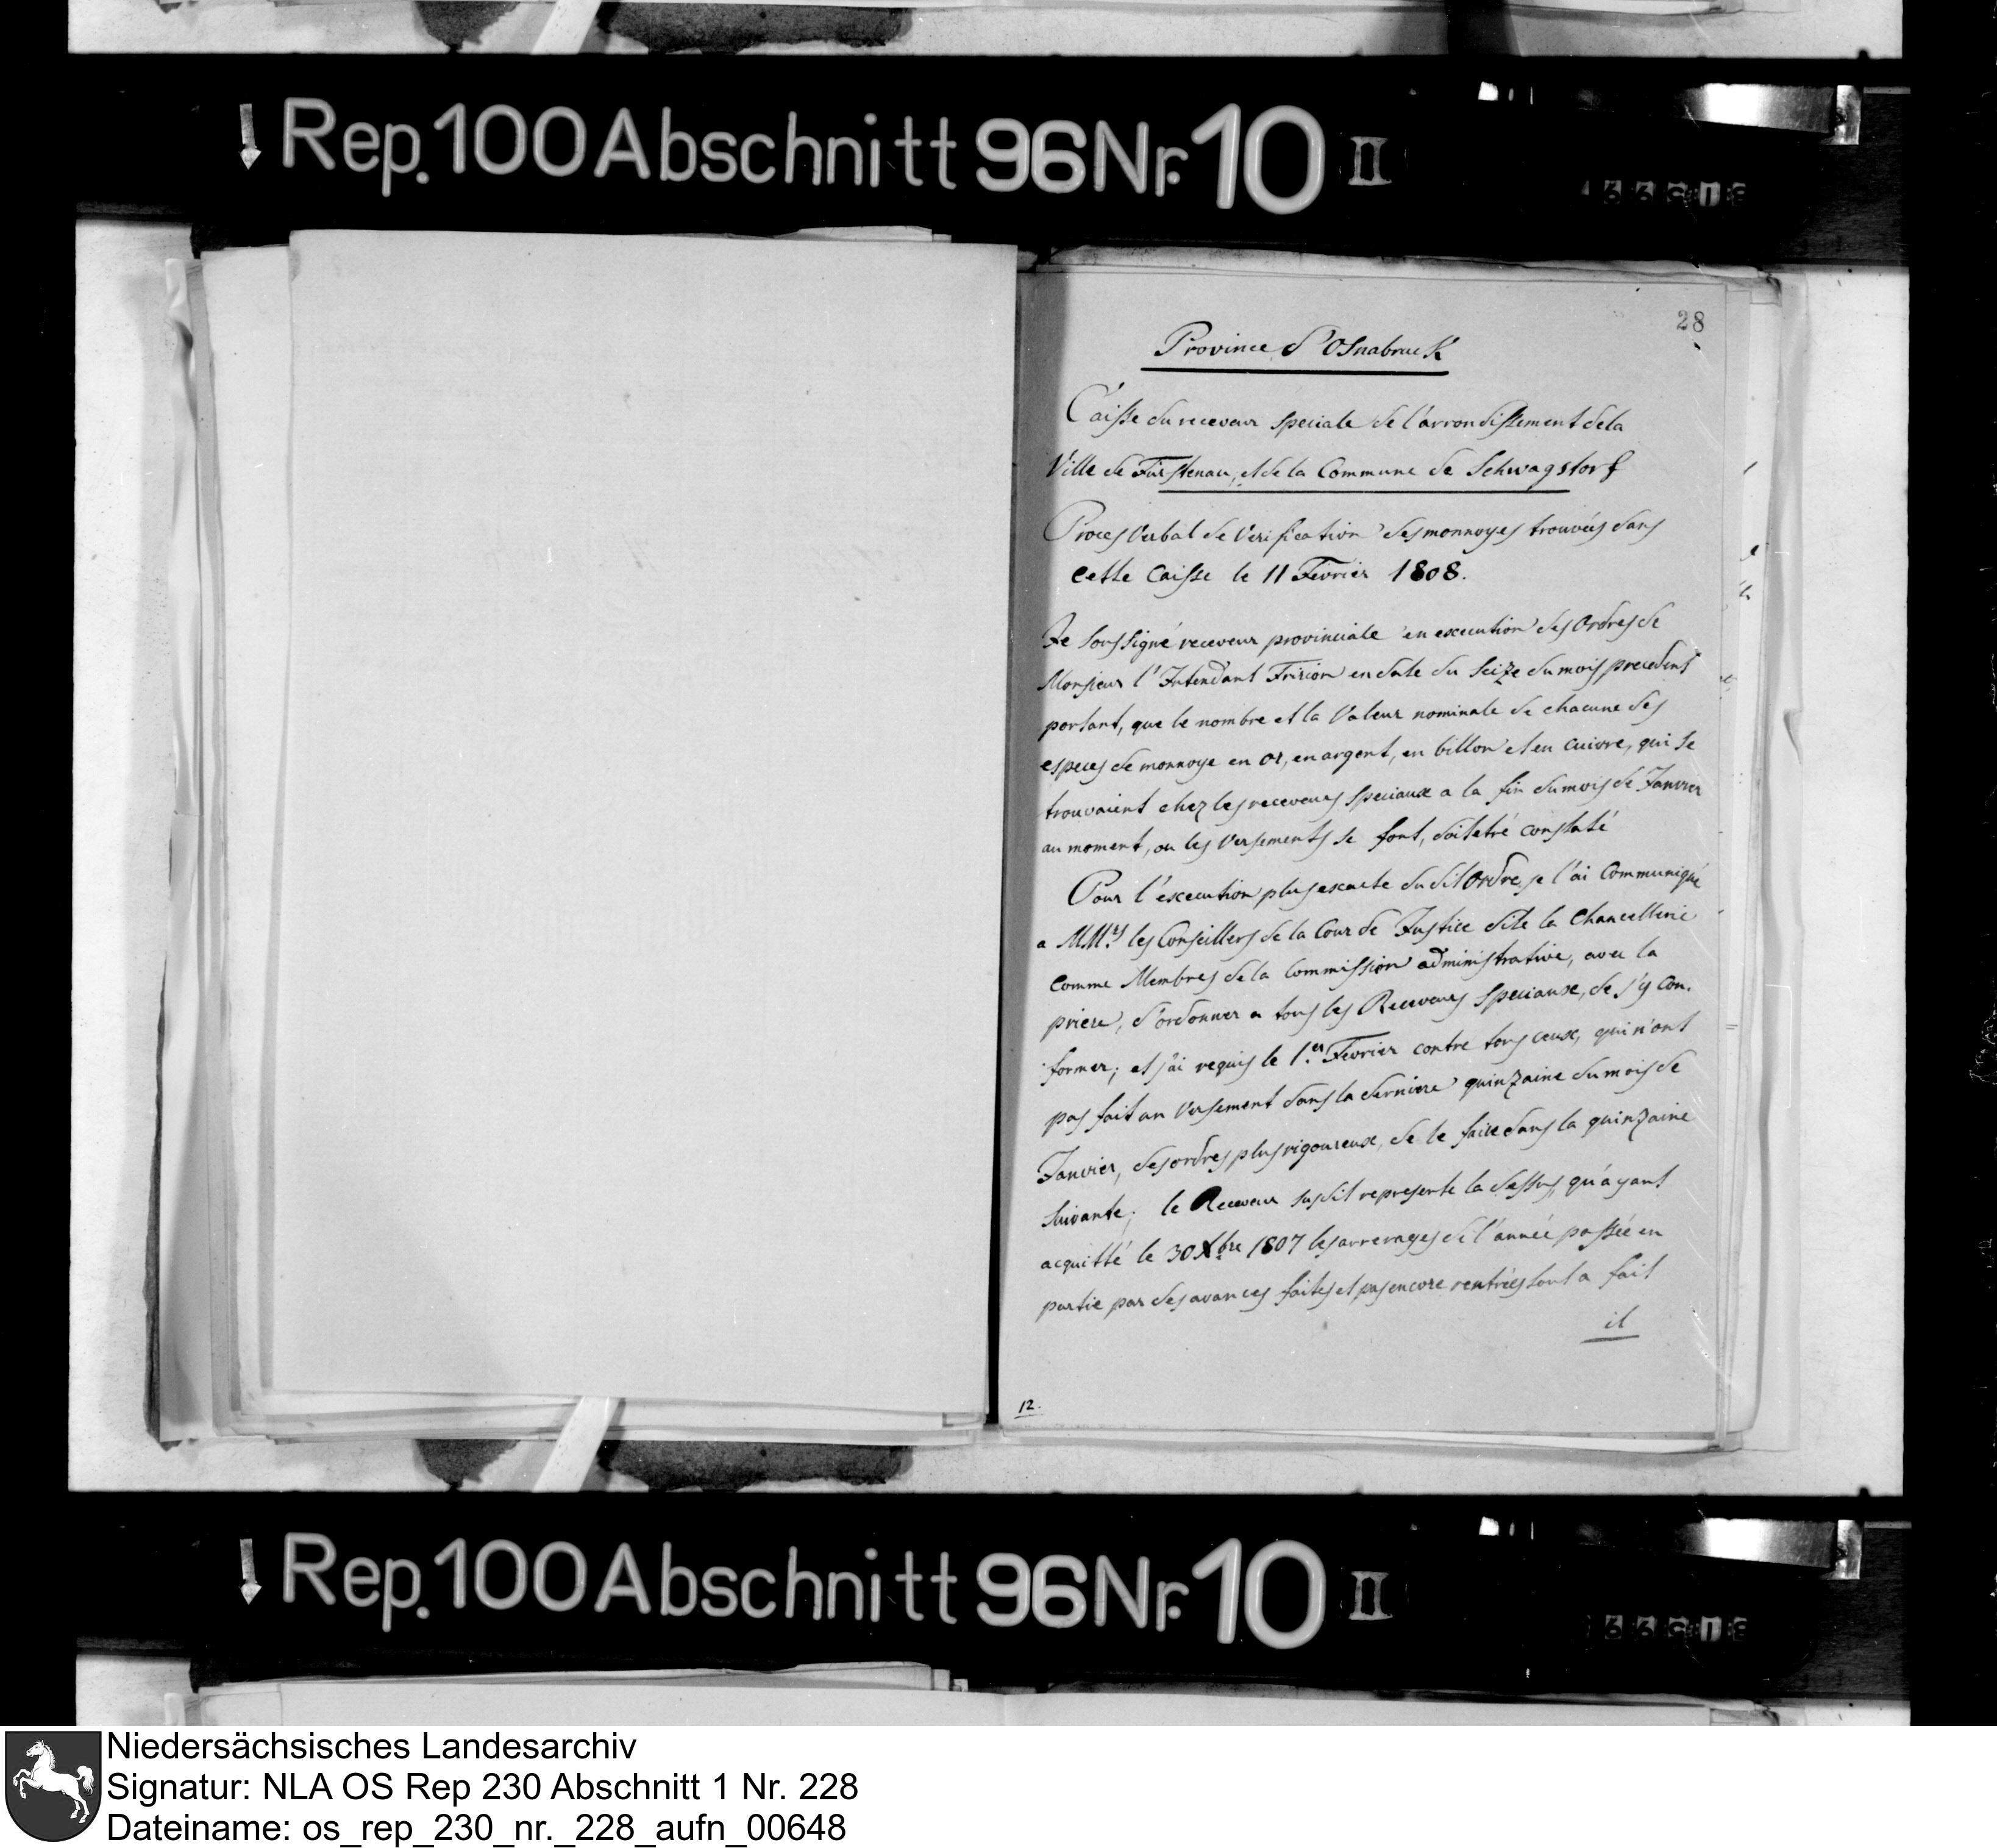 Rep. 100 Abschnitt 96 Nr. 10 II
28
Province d'Osnabruck
Caisse du receveur speciale de l'arrondissement de la
Ville de Fürstenau, et de la Commune de Schwagstorf
Proces Verbal de Verification des monnoyes trouvées dans
cette Caisse le 11 Fevrier 1808.
Je soussigné receveur provinciale en execution des Ordres de
Monsieur l'Intendant Fririon en date du seize du mois precedent
portant, que le nombre et la Valeur nominale de chacune des
especes de monnoye en or, en argent, en billon et en cuivre, qui se
trouvaient chez les receveurs speciaux a la fin du mois de Janvier
au moment, ou les Versements se font, soit etré constaté
Pour l'execution plus exacte du dit Ordre, je l'ai Communiqué
a MM.rs les Conseillers de la Cour de Justice dite la Chancellerie
comme Membres de la Commission administrative, avec la
priere, d'ordonner a tous les Receveurs speciaux, de s'y con.
former; et j'ai requis le 1.er Fevrier contre tous ceux, qui n'ont
pas fait un Versement dans la derniere quinzaine du mois de
Janvier, des ordres plus rigoureux, de le faire dans la quinzaine
suivante; le Receveur susdit represente la dessus, qu'ayant
acquitté le 30 Xbre 1807 les arrerages de l'année passée en
partie par des avances faites et pas encore rentrées tout a fait
il
12.
Rep. 100 Abschnitt 96 Nr. 10 II
Niedersächsisches Landesarchiv
Signatur: NLA OS Rep 230 Abschnitt 1 Nr. 228
Dateiname: os_rep_230_nr._228_aufn_00648